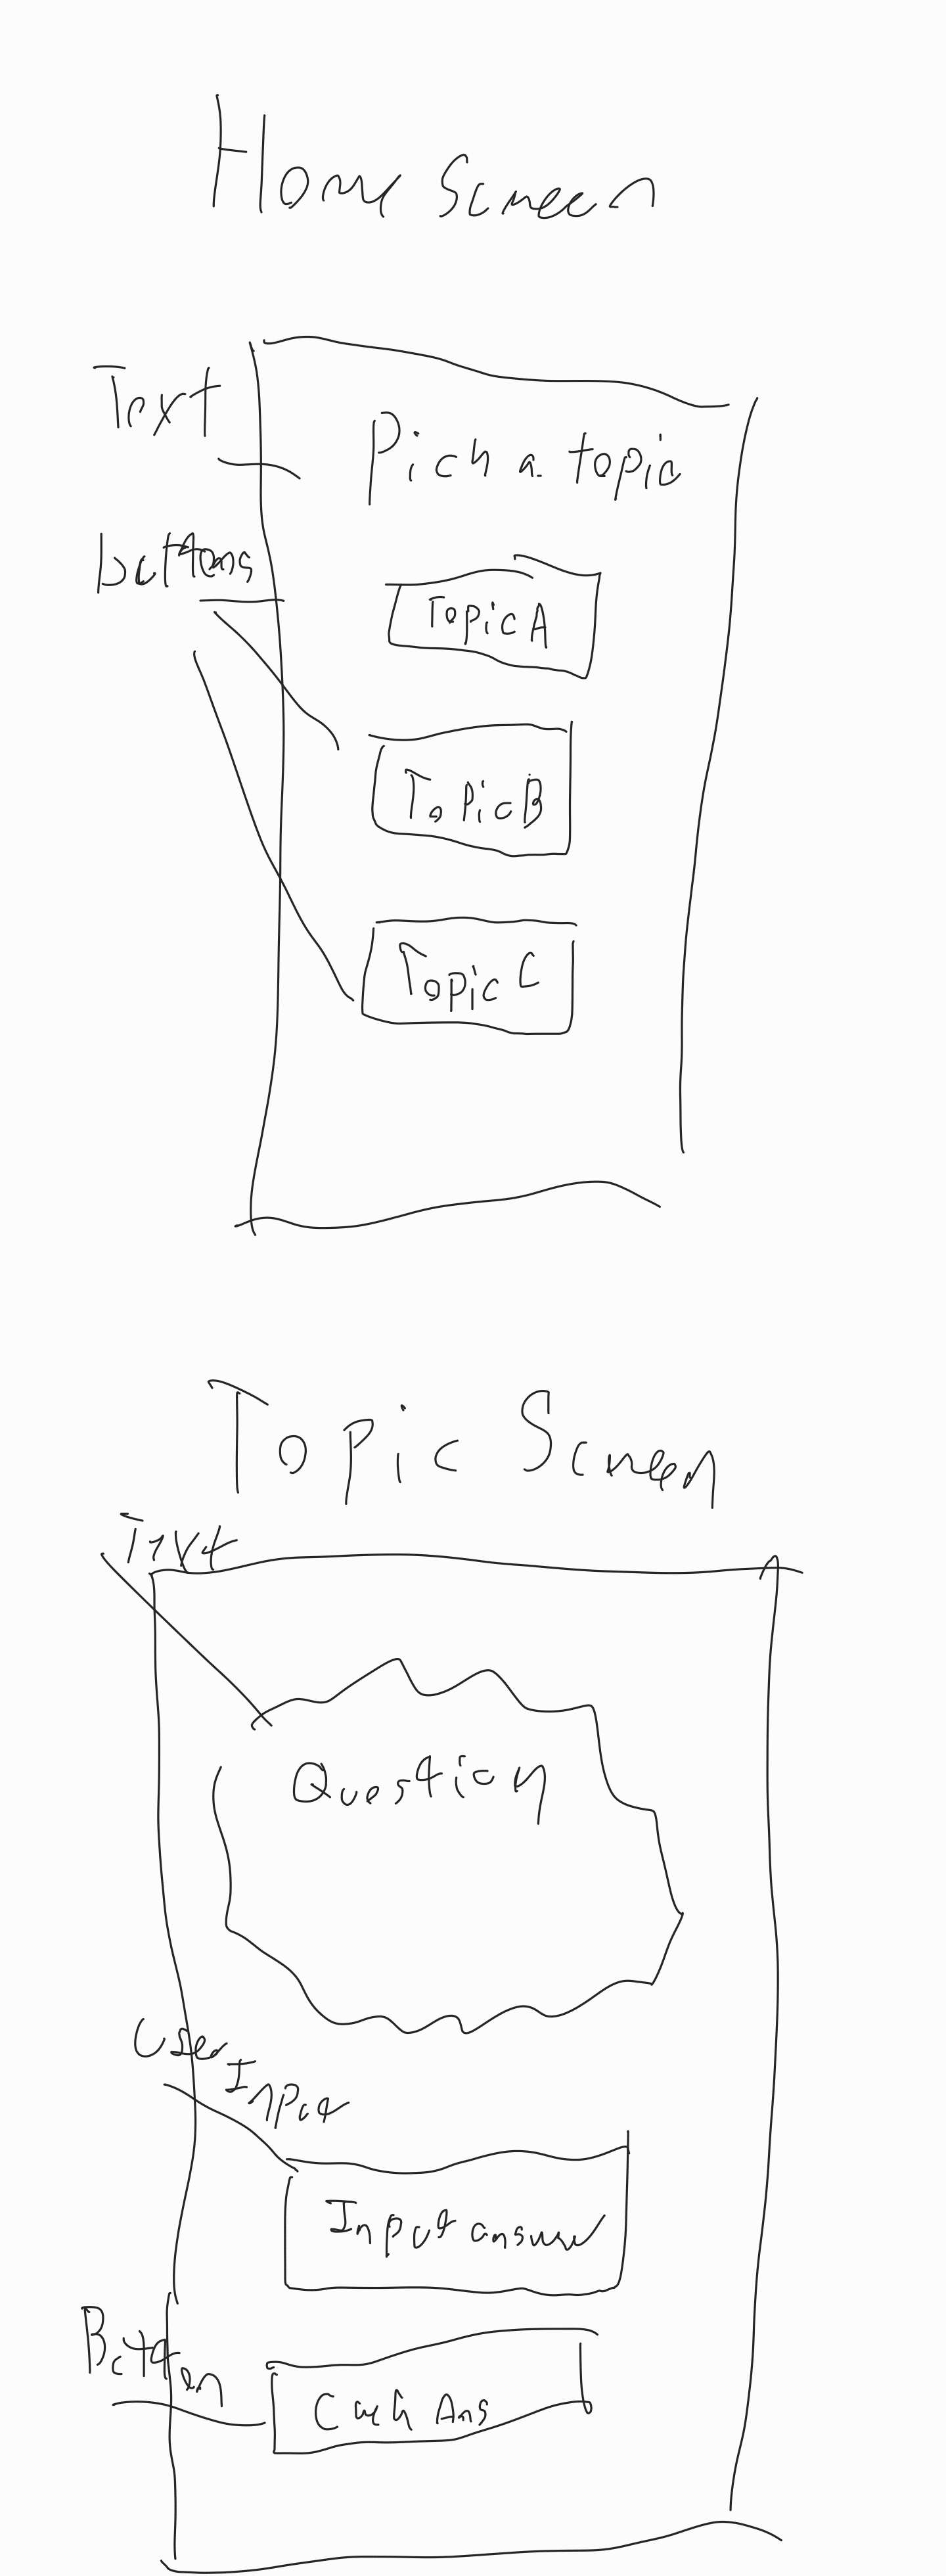 Home Screen
Text
Pick a topic
buttons
Topic A
Topic B
Topic C
Topic Screen
Text
Question
User
Input
Input answer
Button
Check Ans